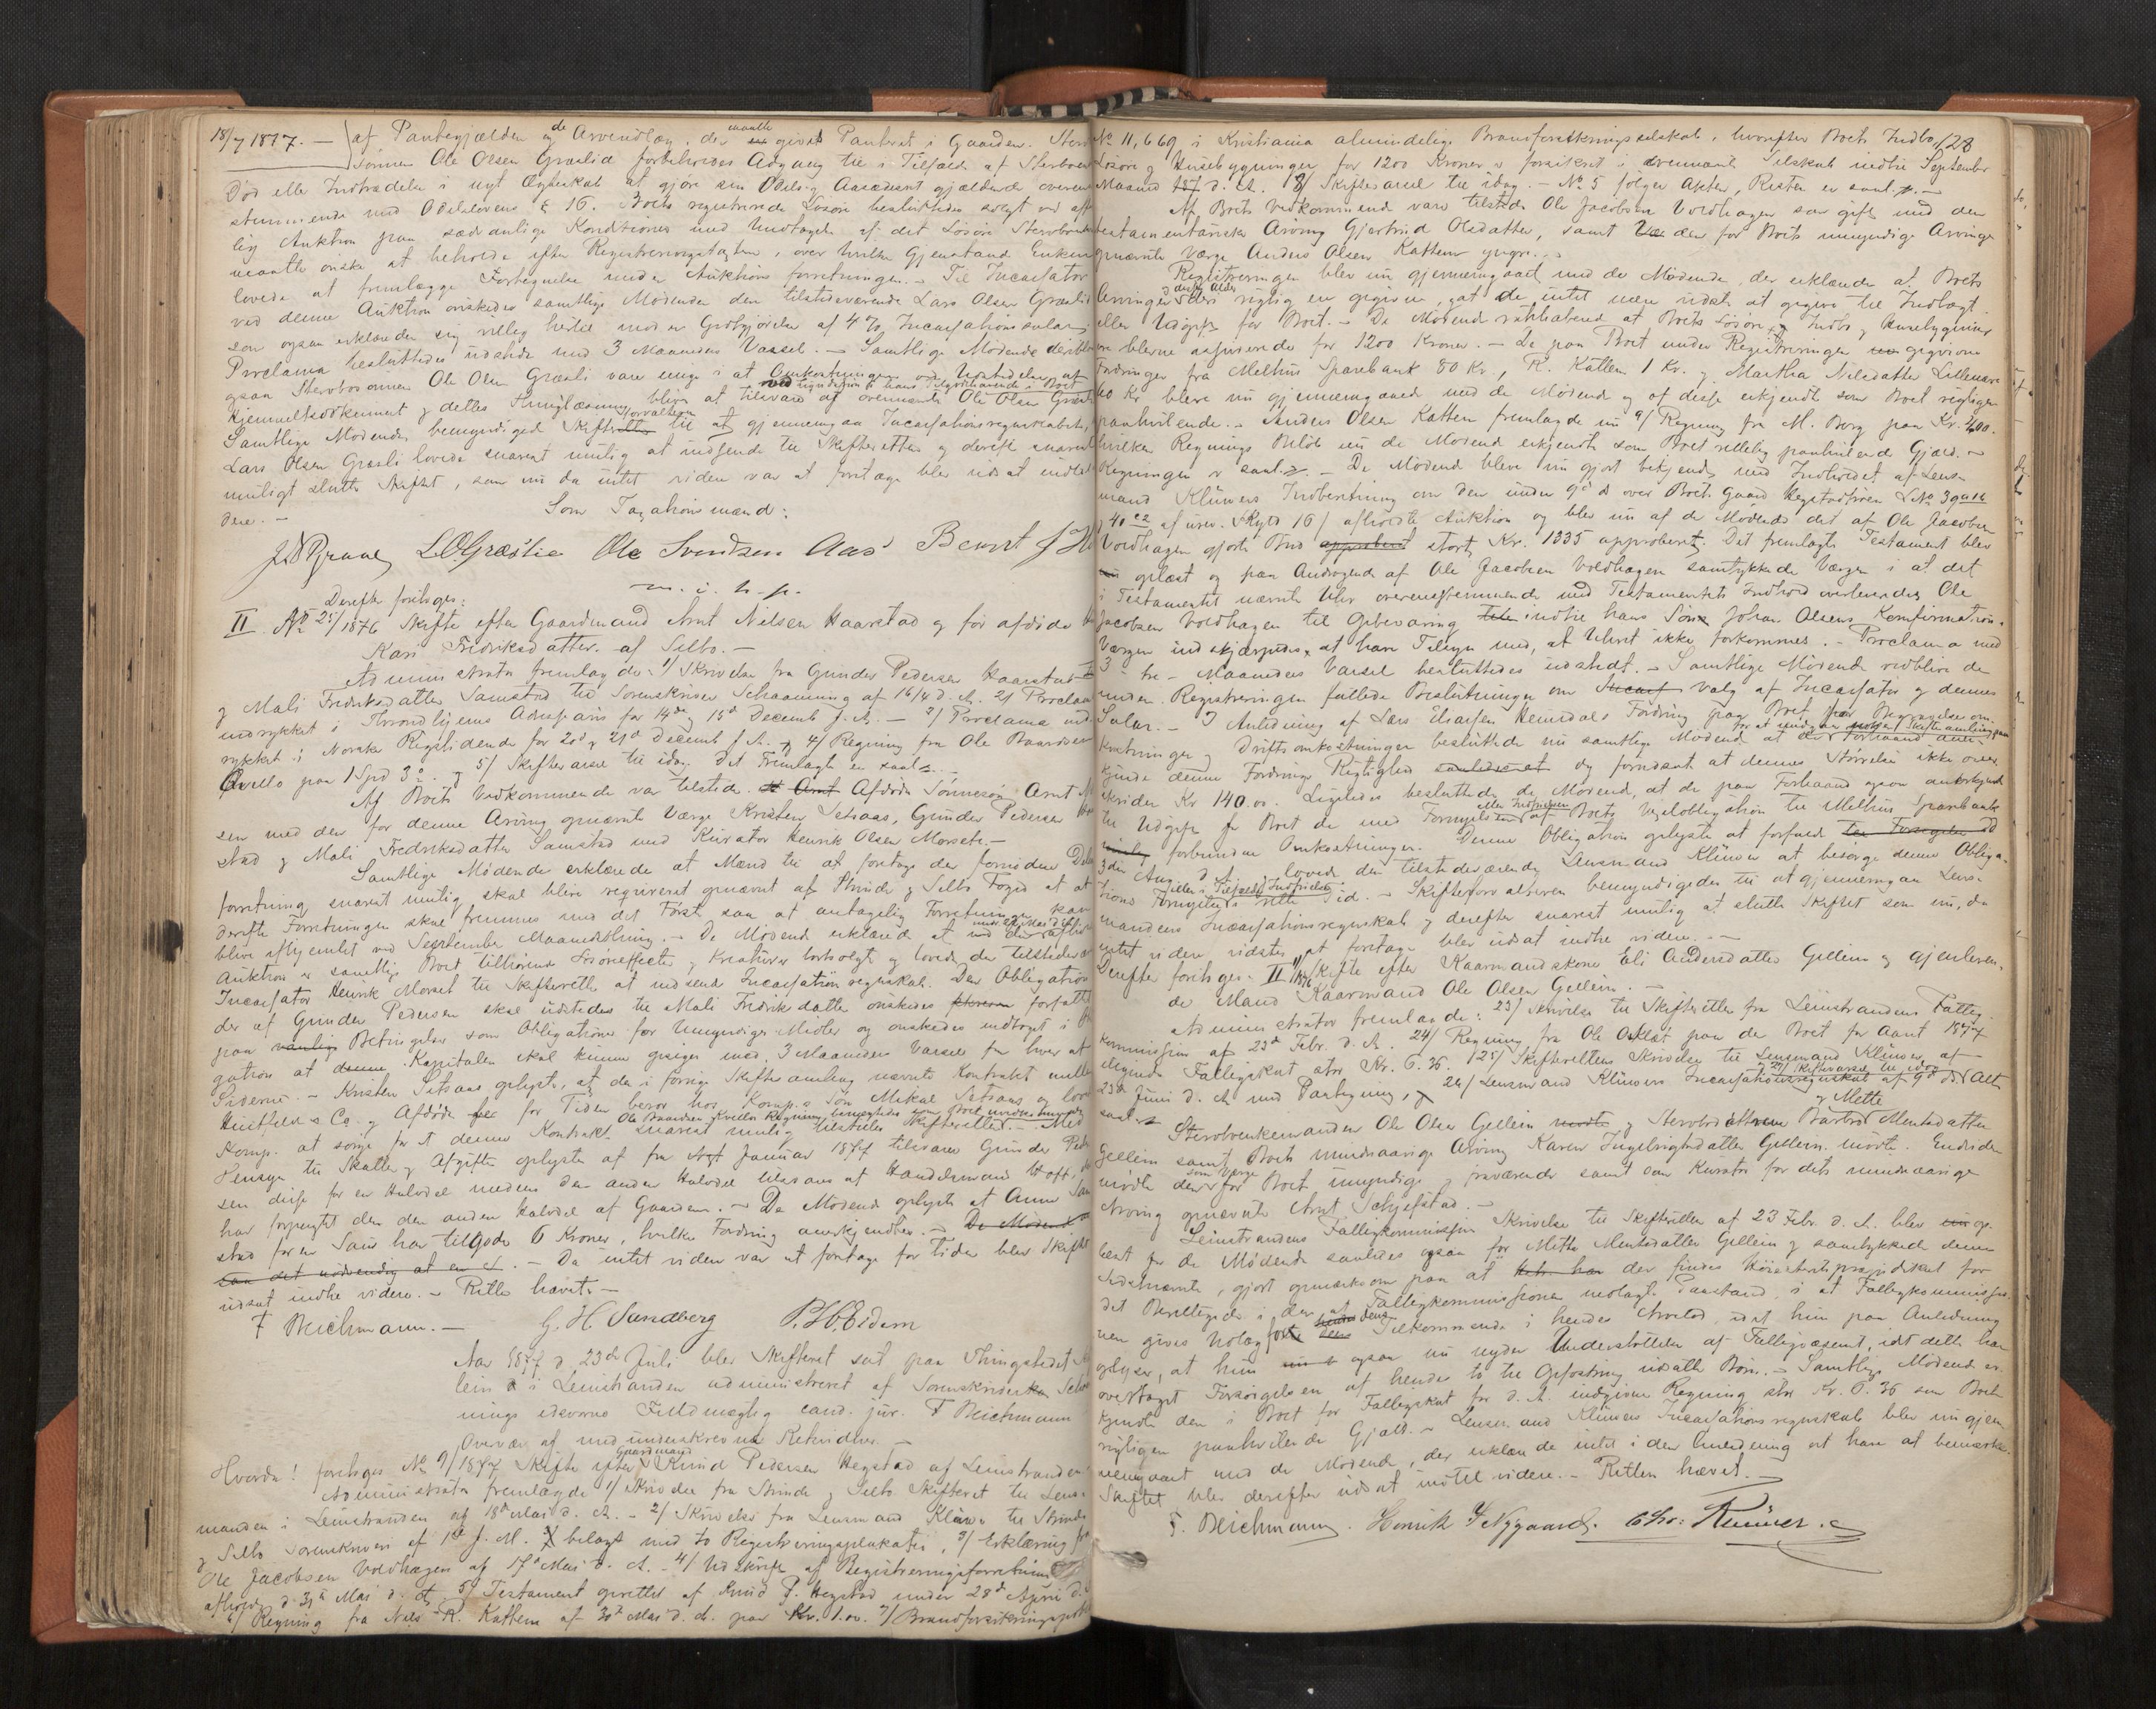 18/7 1877. — af Pantegjælden og de Arvendlæg, der maatte givet Panteret i Gaarden.
Sønnen Ole Olsen Græslid forbeholdes Adgang til i Tilfælde af
Død eller Indtrædelse i nyt Ægteskab at gjøre sin Odels og Aasædesret gjældende overens
stemmende med Odelslovens § 16. Boets registrerede Løsøre besluttedes solgt ved
lig Auktion paa sædvanlige Konditioner med Undtagelse af det Løsøre
maatte ønske at beholde efter Registreringstaxten, over hvilke Gjenstande Enken
lovede at fremlægge Fortegnelse under Auktionsforretningen. – Til Incassator
ved denne Auktion ønskedes samtlige Mødende den tilstedeværende Lars Olsen Græslid
som ogsaa erklærede sig villig hertil mod en Godtgjørelse af 4 % Incassations
Proclama besluttedes udstedt med 3 Maaneders Varsel. – Samtlige Mødende
ogsaa Ole Olsen Græsli vare enige i at Omkostningen ved Udstedelse af
Hjemmelsdokument og dettes Thinglæsning bliver at tilsvare af ovennævnte Ole Olsen Græsli
Samtlige Mødende bemyndigede Skifteforvalteren til at gjennemgaa Incassationsregnskabet,
Lars Olsen Græsli lovede snarest mulig at indsende til Skifteretten og derefter snarest
muligt slutte Skiftet, som nu da intet videre var at foretage blev udsat indtil
dere. –
Som Taxationsmænd:
L.O.Græslie Ole Svendsen Aas Bernt
m. i. h. p.
Derefter foretoges:
II. No 25/1876 Skifte efter Gaardmand Arnt Nilsen Haarstad og før afdøde
Kari Fredriksdatter af Selbo. –
Administrator fremlagde: 1/ Skrivelse fra Gunder Pedersen Haarstad
og Mali Fredriksdatter Samstad til Sorenskriver Schaanning af 16/4 d. A. 2/ Proclama
indrykket i Throndhjems Adresseavis for 14de og 15de Decemb f. A. – 3/ Proclama ind
rykket i Norske Rigstidende for 20d og 21d Decemb f. A. og 4/ Regning fra Ole Baardsen
Qvello paa 1 Spd 3 og 5/ Skiftevarsel til idag. Det Fremlagte er saal.
Af Boets Vedkommende var tilstede Afdødes Sønnesøn Arnt
sen med den for denne Arving opnævnte Værge Kristen Setsaas, Gunder Pedersen
stad og Mali Fredriksdatter Samstad med Kurator Henrik Olsen Morset. –
Samtlige Mødende erklærede at Mænd til at foretage den fornødne
forretning snarest mulig skal blive requireret opnævnt af Strinde og Selbo Foged at
derefter Forretningen skal fremmes med det Første saa at antagelig Forretningen kan
blive afhjemlet ved September Maanedsthing. – De Mødende erklærede at ved den afholdte
Auktion er samtlige Boet tilhørende Løsøreeffecter og Kreaturer bortsolgt og lovede den tilstedeværende
Incassator Henrik Morset til Skifteretten at indsende Incassationsregnskab. Den Obligation
der af Gunder Pedersen skal udstedes til Mali Fredriksdatter ønskedes forfattet
paa Betingelser som Obligationer for Umyndiges Midler og ønskedes indtaget i
gation at Kapitalen skal kunne opsiges med 3 Maaneders Varsel fra hver af
Siderne. – Kristen Setsaas oplyste, at den i forrige Skiftesamling nævnte Kontrakt mellem
Huitfeldt & Co. og Afdøde for Tiden beror hos Komp.s Søn Mikal Setsaas og lovede
Komp. at sørge for at denne Kontrakt snarest mulig tilstilles Skifteretten. – Med
Hensyn til Skatter og Afgifter oplystes at fra Januar 1877 tilsvarer Gunder Peder
sen disse for en Halvdel medens den anden Halvdel tilsvares af Handelsmand Hoff,
har forpagtet den den anden Halvdel af Gaarden. – De Mødende oplyste at Anne
stad for en Sau har tilgode 6 Kroner, hvilken Fordring anerkjendtes. –
Da intet videre var at foretage for Tiden blev Skiftet
udsat indtil videre. – Retten hævet. –
F Deichmann. — G. H. Sandberg P. H. Eidem
Aar 1877 d. 23de Juli blev Skifteret sat paa Thingstedet
lein i Leinstranden administreret af Sorenskriver
nings edsvorne Fuldmægtig cand. jur. F Deichmann
Overvær af medunderskrevne Retsvidner. –
Hvorda! foretoges No 9/1877 Skifte efter Gaardmand Knud Pedersen Hegstad af Leinstranden
Administrator fremlagde 1/ Skrivelse fra Strinde og Selbo Skifteret til Lens
manden i Leinstranden af 18de Mai d. A. – 2/ Skrivelse fra Lensmand Klüwer til Strinde
og Selbo Sorenskriveri af 1ste f. M. belagt med to Registreringsplakater, 3/ Erklæring
Ole Jacobsen Voldhagen af 17de Mai d. A. – 4/ Udskrift af Registreringsforretning
afholdt d. 30te Mai d. A. 5/ Testament oprettet af Knud P. Hegstad under 28de April d.
6/ Regning fra Nils R. Kattem af 30te Mai d. A. paa Kr. 1.00. 7/ Brandforsikringspolice
No 11,669 i Kristiania almindelige Brandforsikringsselskab, hvorefter Boets Indbo, 128
Løsøre og Husebygninger for 1200 Kroner er forsikret i ovennævnte Selskab indtil September
Maaned d. A. 8/ Skiftevarsel til idag. – No 5 følger Akten, Resten er saal.
Af Boets Vedkommende vare tilstede Ole Jacobsen Voldhagen som gift med den
testamentariske Arving Gjertrud Olsdatter, samt den for Boets umyndige Arvinge
opnævnte Værge Anders Olsen Kattem yngre.
Registreringen blev nu gjennemgaaet med de Mødende, der erklærede at Boets
Arvinger og deres Alder deri rigtig er opgivne, og at de intet mere vidste at opgive til Indtægt
eller Udgift for Boet. – De Mødende vedtoges at Boets Løsøre, Indbo og Husebygninger
blevne assurerede for 1200 Kroner. – De paa Boet under Registreringen opgivne
Fordringer fra Melhus Sparebank 80 Kr., R. Kattem 1 Kr. og Martha Nilsdatter
40 Kr bleve nu gjennemgaaede med de Mødende og af disse erkjendt som Boet rigtigen
paahvilende. – Anders Olsen Kattem fremlagde nu 9/ Regning fra M. Borg paa Kr. 4.00.
hvilken Regnings Beløb nu de Mødende erkjendte som Boet rettelig paahvilende Gjæld. –
Regningen er saal. – De Mødende bleve nu gjort bekjendt med Indholdet af Lens-
mand Klüwers Indberetning om den under 9de ds over Boets Gaard Hegstadtrøen
af urev. Skyld 16/ afholdte Auktion og blev nu af de Mødende det af Ole Jacobsen
Voldhagen gjorte Bud stort Kr. 1335 approberet. Det fremlagte Testament blev
oplæst og paa Andragende af Ole Jacobsen Voldhagen samtykkede Værgen i at det
i Testamentet nævnte Uhr overensstemmende med Testamentets Indhold overleveredes Ole
Jacobsen Voldhagen til Opbevaring indtil hans Søn Johan Olsens Konfirmation.
Værgen indskjærpedes, at have Tilsyn med, at Uhret ikke forkommes. – Proclama med
3 – tre – Maaneders Varsel besluttedes udstedt. – Samtlige Mødende vedblive de
under Registreringen fattede Beslutninger om Valg af Incassator og dennes
Salær. – I Anledning af Lars Hemdals Fordring paa Boet for Begravelsesom-
kostninger og Driftsomkostninger besluttede nu samtlige Mødende at paa Forhaand aner-
kjende denne Fordrings Rigtighed og forudsat at dennes Størrelse ikke over
skrider Kr 140.00. Ligeledes besluttede de Mødende, at de paa Forhaand ogsaa anerkjende
til Udgift for Boet de med Fornyelsen eller Indfrielsen af Boets Vexelobligation til Melhus Sparebank
forbundne Omkostninger. Denne Obligation oplystes at forfalde
3die Aug. d. A. og lovede den tilstedeværende Lensmand Klüwer at besørge denne Obliga-
tions Fornyelse i rette Tid. – Skifteforvalteren bemyndigedes til at gjennemgaa Lens-
mandens Incassationsregnskab og derefter snarest mulig at slutte Skiftet som nu, da
intet videre vidstes at foretage blev udsat indtil videre. –
Derefter foretoges: II 11/1876 Skifte efter Kaarmandskone Eli Andersdatter Gellein og gjenleven-
de Mand Kaarmand Ole Olsen Gellein. –
Administrator fremlagde: 23/ Skrivelse til Skifteretten fra Leinstrandens Fattig-
kommission af 23de Febr. d. A. 24/ Regning fra Ole paa de Boet for Aaret 1877
Fattigskat stor Kr. 6.36. 25/ Skifterettens Skrivelse til Lensmand Klüwer af
23de Juni d. A. med Paategning, og 26/ Lensmand Klüwers Incassationsregnskab af 9de ds 27/ Skiftevarsel til idag Alt
saal.
Stervboenkemanden Ole Olsen Gellein og Stervbodøttrene Barbro og Mette Mentsdatter
Gellein samt Boets mindreaarige Arving Karen Ingebrigtsdatter Gellein mødte. Endvidere
mødte den som Værge for Boets umyndige og fraværende samt som Kurator for dets mindreaarige
Arving opnævnte Arnt Schjefstad. –
Leinstrandens Fattigkommissions Skrivelse til Skifteretten af 23 Febr. d. A. blev op-
læst for de Mødende saaledes ogsaa for Mette Mentsdatter Gellein og samtykkede denne
sidstnævnte, gjort opmærksom paa at der findes Høiesteretspræjudikat for
det Berettigede i den af Fattigkommissionen nedlagte Paastand, i at Fattigkommissio-
nen gives Udlæg for det denne Tilkommende i hendes Arvelod, idet hun paa Anledning
oplyser, at hun ogsaa nu nyder Understøttelse af Fattigvæsenet, idet dette har
overtaget Forsørgelsen af hendes to til Opfostring udsatte Børn. – Samtlige Mødende er-
kjendte den i Boet for Fattigskat for d. A. indgivne Regning stor Kr. 6.36 som Boet
rigtigen paahvilende Gjæld. – Lensmand Klüwers Incassationsregnskab blev nu gjen-
nemgaaet med de Mødende, der erklærede intet i den Anledning at have at bemærke.
Skiftet blev derefter udsat indtil videre. – Retten hævet. –
F. Deichmann. Henrik Nygaard. Chr: Klüwer.